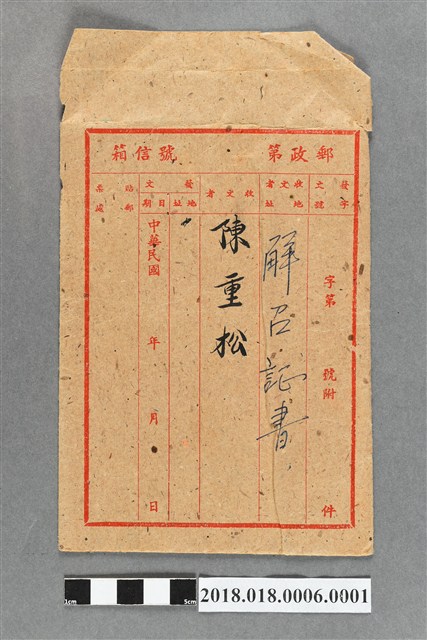 郵政第　號信箱
發文字號
收文者地址
收文者
發文
地址
日期
貼郵票處
字第　號附　件
解召証書
陳重松
中華民國　年　月　日
1cm
5cm
2018.018.0006.0001